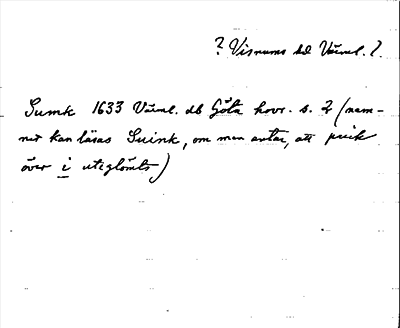 ? Visnums hd Värml. l.
Sumk 1633 Värml. db Göta hovr. s. 2 (nam-
net kan läsas Suink, om man antar, att prick
över i uteglömts)